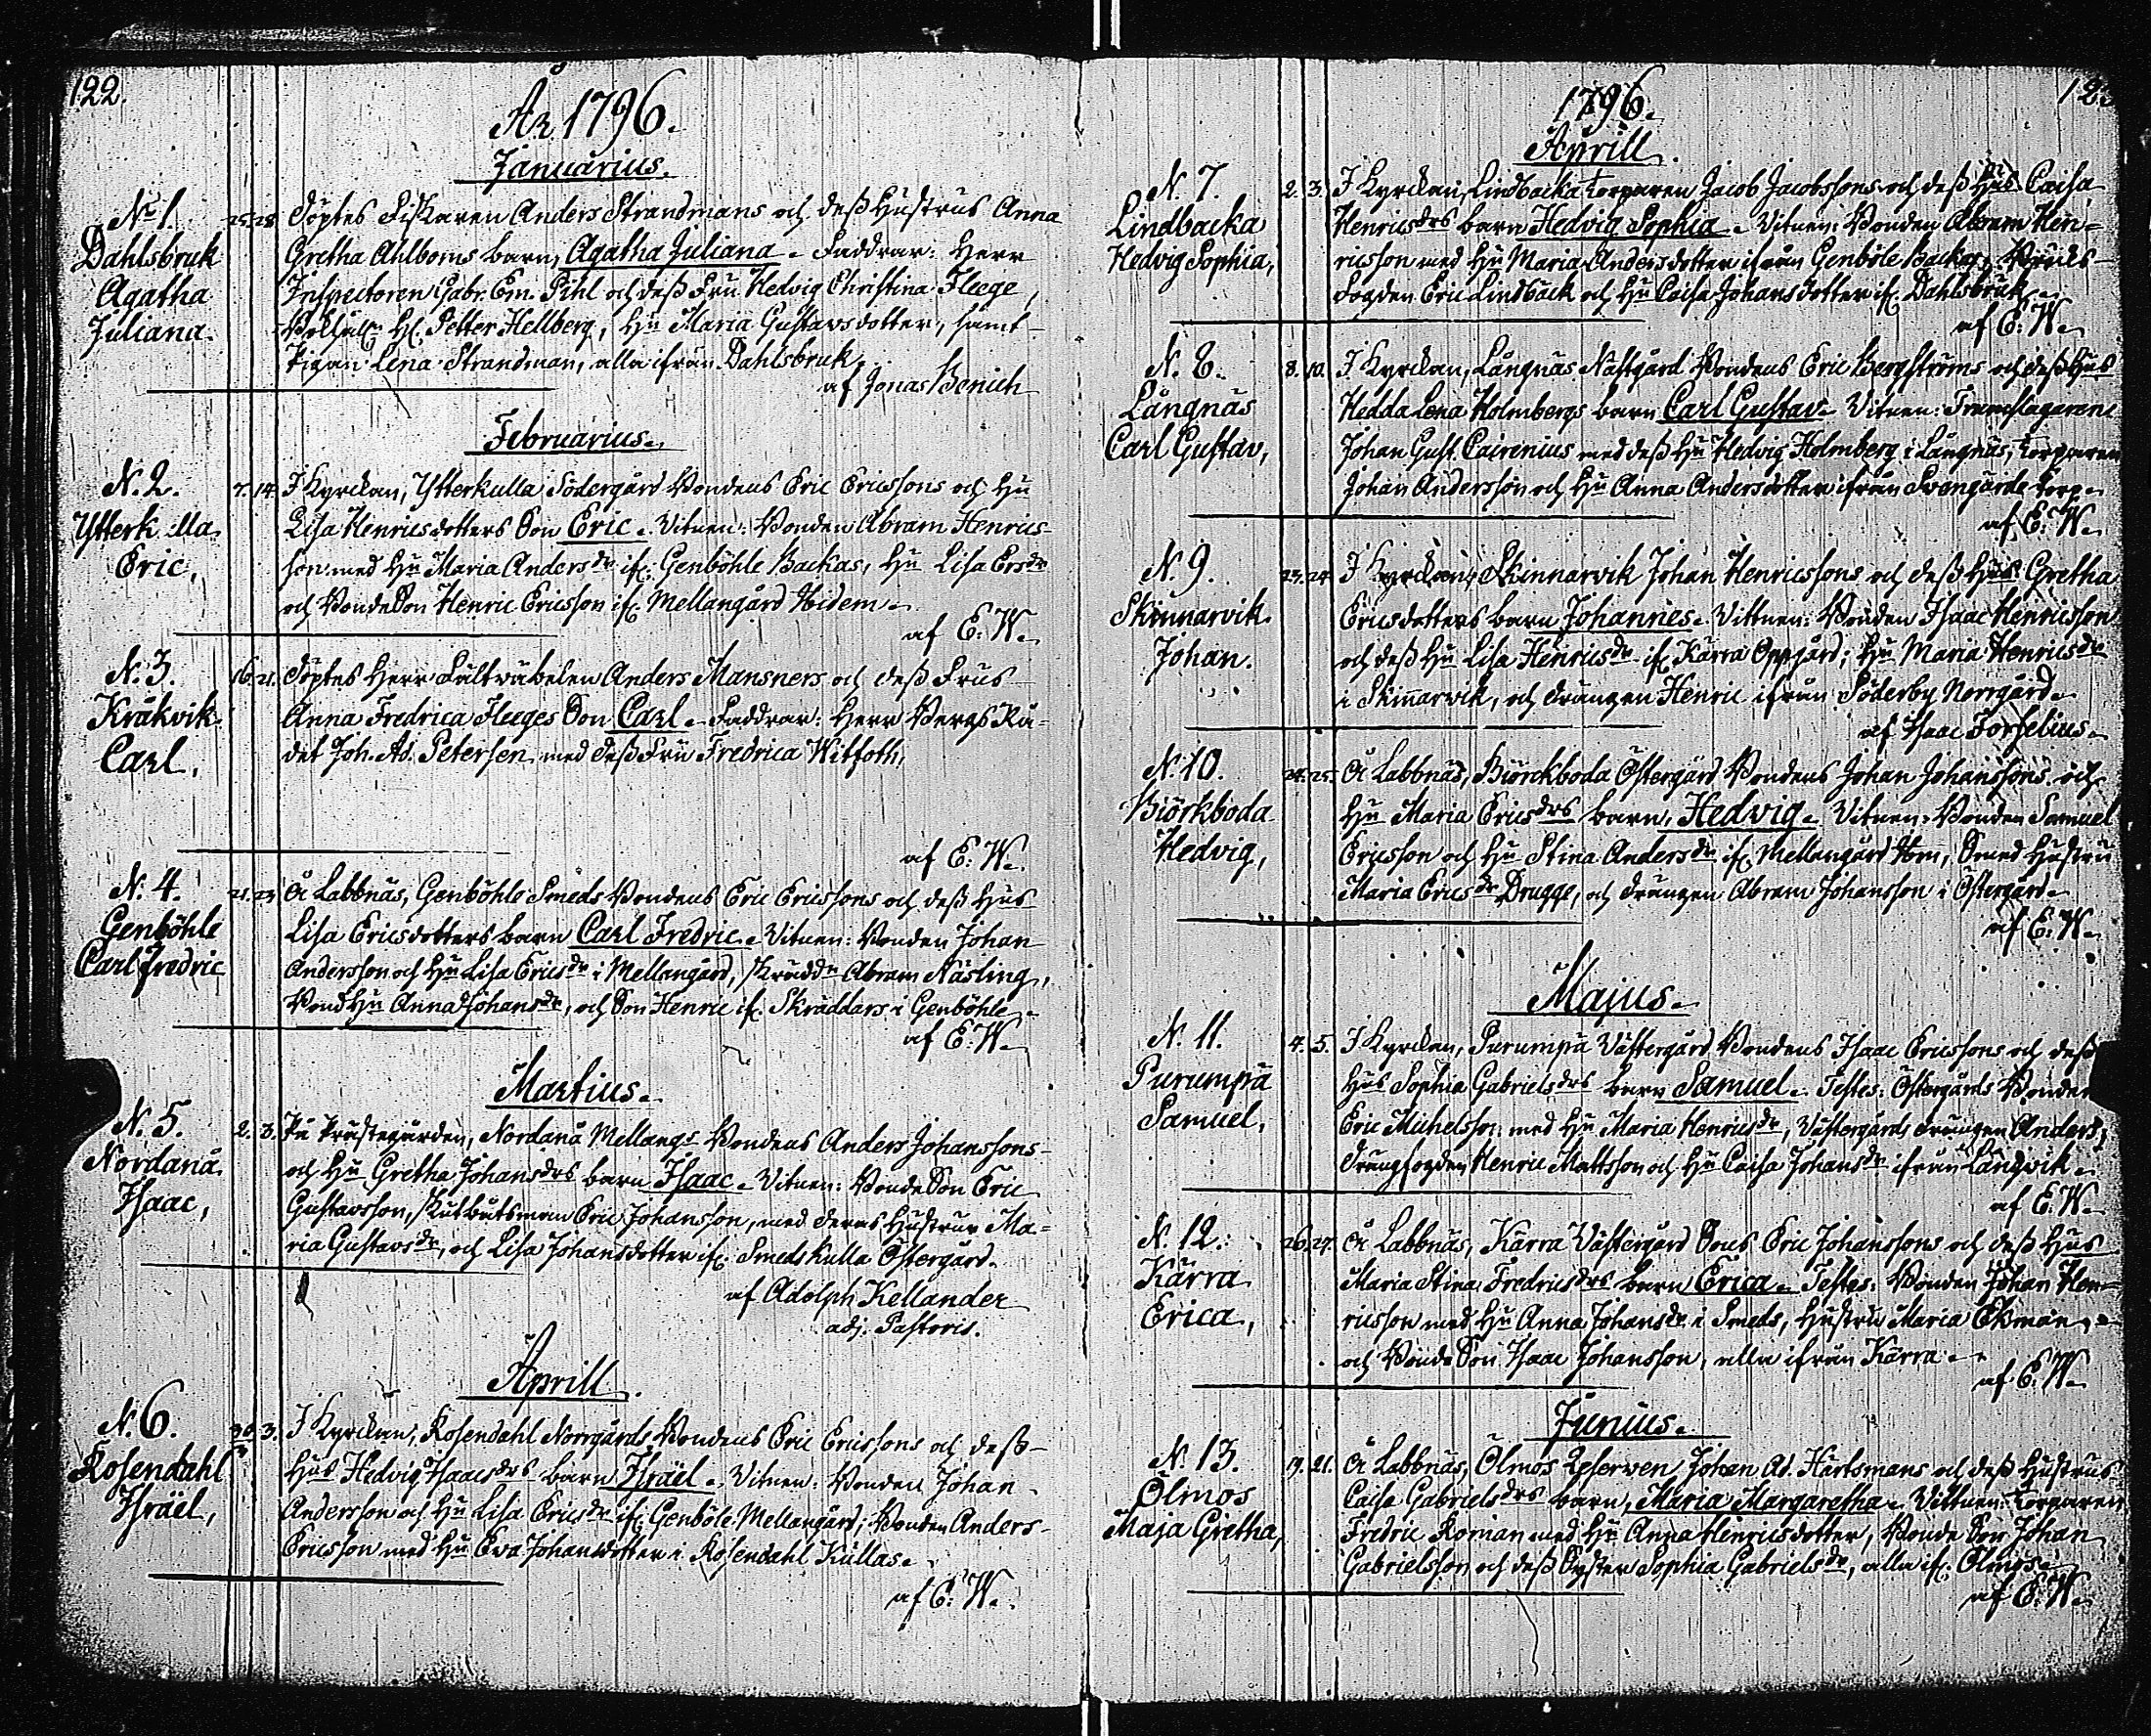 122.
År 1796.
Januarius.
No 1.
Dahlsbruk
Agatha
Juliana.
25. 28.
Döptes Fiskaren Anders Strandmans och dess Hustrus Anna
Gretha Ahlboms barn, Agatha Juliana. Faddrar: Herr
Inspectoren Gabr. Em. Pihl och dess Fru Hedvig Christina Fleege,
Hr. Petter Hellberg, Hu Maria Gustavsdotter, samt
Pigan Lena Strandman, alla ifrån Dahlsbruk.
af Jonas Benich
Februarius.
N. 2.
Ytterkulla
Eric,
7. 14.
I Kyrckan, Ytterkulla Södergård Bondens Eric Ericssons och Hu
Lisa Henricsdotters Son Eric. Vitnen: Bonden Abram Henrics-
son med Hu Maria Andersdr if. Genböhle Backas, Hu Lisa Ersdr
och BondeSon Henric Ericsson if. Mellangård Hidem.
af E. W.
N. 3.
Kråkvik
Carl,
16. 21.
Döptes Herr Fältväbelen Anders Mansners och dess Frus
Anna Fredrica Fleeges Son Carl. Faddrar: Herr BergsRå-
det Joh. Ad. Petersen med dess Fru Fredrica Witfoth,
af E. W.
N. 4.
Genböhle
Carl Fredric
Å Labbnäs, Genböhle Smeds Bondens Eric Ericssons och dess Hus
Lisa Ericsdotters barn Carl Fredric. Vitnen: Bonden Johan
Andersson och Hu Lisa Ericsdr i Mellangård, Skräddn Abram Näsling,
BondHu Anna Johansdr, och Son Henric if. Skräddars i Genböhle.
af E. W.
Martius.
N. 5.
Nordanå
Isaac,
2. 3.
På Prästegården, Nordanå Mellangs Bondens Anders Johanssons
och Hu Gretha Johansdrs barn Isaac. Vitnen: BondeSon Eric
Gustavsson, Skutbåtsman Eric Johansson, med deras Hustrur Ma-
ria Gustavsdr, och Lisa Johansdotter if. Smedskulla Östergård.
af Adolph Kellander
adj. Pastoris.
Aprill.
N. 6.
Rosendahl
Israël,
30. 3.
I Kyrckan, Rosendahl Norrgårds Bondens Eric Ericssons och dess
Hus Hedvig Isaacsdrs barn Israël. Vitnen: Bonden Johan
Andersson och Hu Lisa Ericsdr if. Genböle Mellangård; Bonden Anders
Ericsson med Hu Eva Johansdotter i Rosendahl Kullas.
af E. W.
1796.
Aprill.
N. 7.
Lindbacka
Hedvig Sophia,
2. 3.
I Kyrckan, Lindbacka Torparen Jacob Jacobssons och dess Hus Caisa
Henricsdrs barn Hedvig Sophia. Vitnen: Bonden Abram Hen-
ricsson med Hu Maria Andersdotter ifrån Genböle Backas, Bruks-
Fogden Eric Lindbäck och Hu Caisa Johansdotter if. Dahlsbruk.
af E. W.
N. 8.
Långnäs
Carl Gustav,
8. 10.
I Kyrckan, Långnäs Nästgård Bondens Eric Bergströms och dess Hus
Hedda Lena Holmbergs barn Carl Gustav. Vitnen: Trumslagaren
Johan Gust. Cairenius med dess Hu Hedvig Holmberg i Långnäs, Torparen
Johan Andersson och Hu Anna Andersdotter ifrån Svengärde torp.
af E. W.
N. 9.
Skinnarvik
Johan.
23. 24.
I Kyrckan, Skinnarvik Johan Henricssons och dess Hus Gretha
Ericsdotters barn Johannes. Vittnen: Bonden Isaac Henricsson
och dess Hu Lisa Henricsdr if. Kärra Oppgård; Hu Maria Henricsdr
i Skinnarvik, och drängen Henric ifrån Söderby Norrgård.
af Isaac Forselius.
N. 10.
Biörkboda
Hedvig,
24. 25.
Å Labbnäs, Biörckboda Östergård Bondens Johan Johanssons och
Hu Maria Ericsdrs barn, Hedvig. Vitnen: Bonden Samuel
Ericsson och Hu Stina Andersdr if. Mellangård Hem, Smed Hustru
Maria Ericsdr Drugge, och drängen Abram Johansson i Östergård.
af E. W.
Majus.
N. 11.
Purumpä
Samuel,
4. 5.
I Kyrckan, Purumpä Västergård Bondens Isaac Ericssons och dess
Hus Sophia Gabrielsdrs barn Samuel. Testes: Östergårds Bonden
Eric Michelsson med Hu Maria Henricsdr, Västergårds drängen Anders,
drängfogden Henric Mattsson och Hu Caisa Johansdr ifrån Långvik.
af E. W.
N. 12.
Kärra
Erica,
26. 27.
Å Labbnäs, Kärra Västergård Sons Eric Johanssons och dess Hus
Maria Stina Fredricsdrs barn Erica. Testes: Bonden Johan Hen-
ricsson med Hu Anna Johansdr i Smeds, Hustru Maria Ekman,
och BondeSon Isaac Johansson, alla ifrån Kärra.
af E. W.
Junius.
N. 13.
Ölmos
Maja Gretha,
19. 21.
Å Labbnäs, Ölmos Reserven Johan Ad. Hartsmans och dess Hustrus
Caisa Gabrielsdrs barn, Maria Margaretha. Vittnen: Torparen
Fredric Roman med Hu Anna Henricsdotter, Bonde Son Johan
Gabrielsson och dess Syster Sophia Gabrielsdr, alla if. Ölmos.
af E. W.